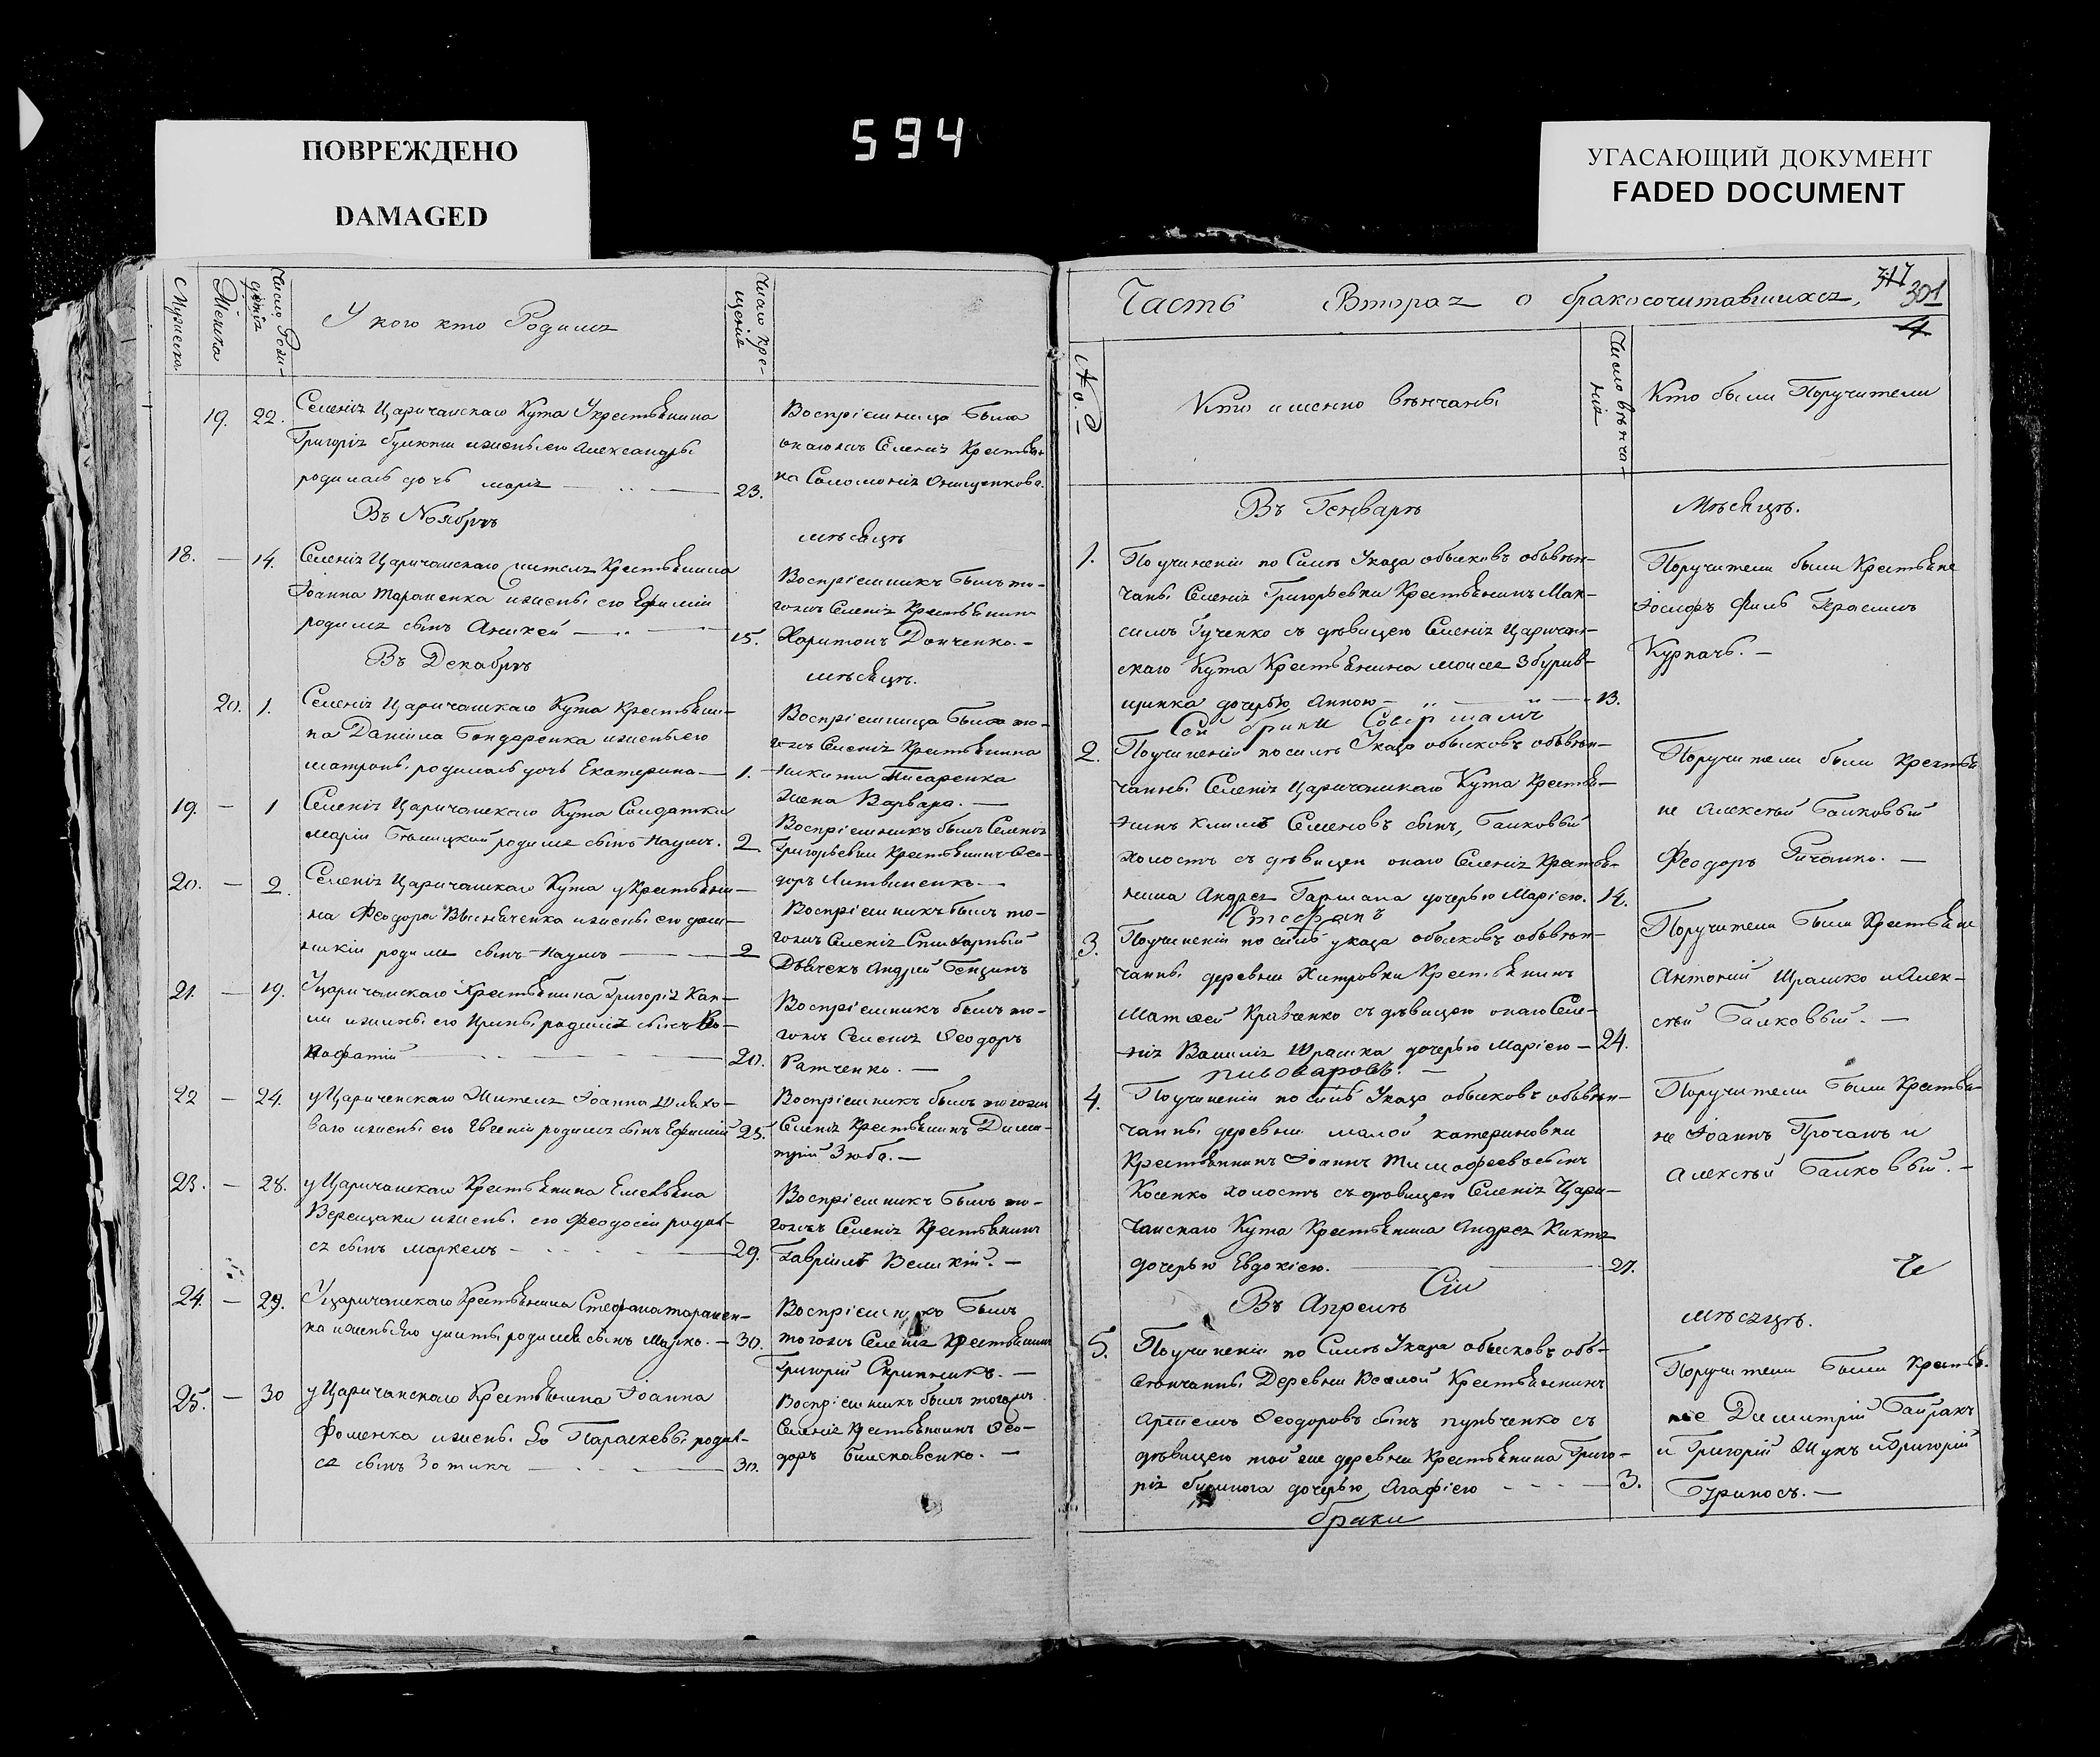 594
ПОВРЕЖДЕНО
DAMAGED
УГАСАЮЩИЙ ДОКУМЕНТ
FADED DOCUMENT
Мужеска.
Женска
Число Рож-
денія
У кого кто Родился
Число кре-
щенія
19. 22. Селенія Царичанскаго Кута У крестьянина
Григорія изжены его Александры
родилась дочь марія 23.
Воспріемница была
онагожъ Селенія Крестьян-
ка Соломонія Онищенкова.
Въ Ноябрѣ мѣсяцѣ
18. — 14. Селенія Царичанскаго жителя Крестьянина
Іоанна Тараненка изжены его Ефиміи
родился сынъ Аникей 15.
Воспріемникъ былъ то-
гожъ Селенія Крестьянинъ
Харитонъ Донченко. —
Въ Декабрѣ мѣсяцѣ.
20. 1. Селенія Царичанскаго Кута Крестьяни-
на Даніила Бондаренка изжены его
матроны. родилась дочь Екатерина — 1.
Воспріемница была то-
гожъ Селенія Крестьянина
Никиты Писаренка
жена Варвара. —
19. — 1 Селенія Царичанскаго Кута Солдатки
Маріи Бѣлицкой родился сынъ Наумъ. 2
Воспріемникъ былъ Селенія
Григорьевки Крестьянинъ Ѳео-
доръ Литвиненко. —
20. — 2. Селенія Царичанскаго Кута у Крестьяни-
на Феодора изжены его дом-
никіи родился сынъ Наумъ 2
Воспріемникъ былъ то-
гожъ Селенія
Дьячекъ Андрей
21. — 19. У Царичанскаго Крестьянина Григорія Кап-
ли изжены его Ирины родился сынъ Во-
нафатій 20.
Воспріемникъ былъ то-
гожъ Селенія Ѳеодоръ
Ратченко. —
22 — 24. у Цариченскаго Жителя Іоанна
изжены его Евгеніи родился сынъ Ефимій 25.
Воспріемникъ былъ тогожъ
Селенія Крестьянинъ Дими-
трій Зюба. —
23. — 28. у Царичанскаго Крестьянина Емельяна
Верещаки изжены. его Феодосіи родил-
ся сынъ маркелъ 29.
Воспріемникъ былъ то-
гожъ Селенія Крестьянинъ
Гавріилъ Великій. —
24. — 29. У Царичанскаго Крестьянина Стефана таранен-
ка изжены его родился сынъ Марко. — 30.
былъ
тогожъ Селенія Крестьянинъ
Григорій Скрипникъ. —
25. — 30 у Царичанскаго Крестьянина Іоанна
Фоменка изжены. Его Параскевы родил-
ся сынъ Зотикъ 30.
Воспріемникъ былъ тогожъ
Селенія Крестьянинъ Ѳео-
доръ
Часть Вторая о бракосочитавшихся, 317 301
4
No.
Кто именно вѣнчаны
Число вѣнча-
нія
Кто были Поручители
Въ Генварѣ Мѣсяцѣ.
1. Поучиненіи по Силѣ Указа обысковъ обвѣн-
чаны Селенія Григорьевки Крестьянинъ Мак-
симъ Гученко съ дѣвицею Селенія Царичан-
скаго Кута Крестьянина моисея Збурив-
щинка дочерью Анною — 13.
Поручители были Крестьяне
Іосифъ Филь Герасимъ
Курпачь. —
Сей браки Совершалъ
2. Поучиненіи по силѣ Указа обысковъ обвѣн-
чанны Селенія Царичанскаго Кута Крестья-
нинъ климъ Семеновъ сынъ, Балковый
холостъ съ дѣвицею онаго Селенія Крестья-
нина Андрея Гармаша дочерью Маріею. 14.
Поручители были крестья-
не Алексѣй Балковый
Феодоръ —
Стефанъ
3. Поучиненіи по силѣ указа обысковъ обвѣн-
чанны деревни Хитровки Крестьянинъ
Матѳей Кравченко съ дѣвицею онаго Селе-
нія Василія Шрамка дочерью Маріею — 24.
Поручители были Крестьяне
Антоній Шрамко и Алек-
сѣй Балковый. —
пивоваровъ. —
4. Поучиненіи по силѣ Указа обысковъ обвѣн-
чанны деревни малой катериновки
Крестьянинъ Іоаннъ Тимофеевъ сынъ
Косенко холостъ съ дѣвицею Селенія Цари-
чанскаго Кута Крестьянина Андрея Киктя
дочерью Евдокіею. 27.
Поручители были Крестья-
не Іоаннъ Прочанъ и
Алексѣй Балковый. —
Сіи
Въ Апрелѣ мѣсяцѣ.
5. Поучиненіи по Силѣ Указа обысковъ объ-
вѣнчанны Деревни Веселой Крестьянинъ
Артемъ Ѳеодоровъ сынъ пупченко съ
дѣвицею той же деревни Крестьянина Григо-
рія дочерью Агафіею 3.
Поручители были крестья-
не Димитрій Байракъ
и Григорій Жукъ и Григорій
—
браки